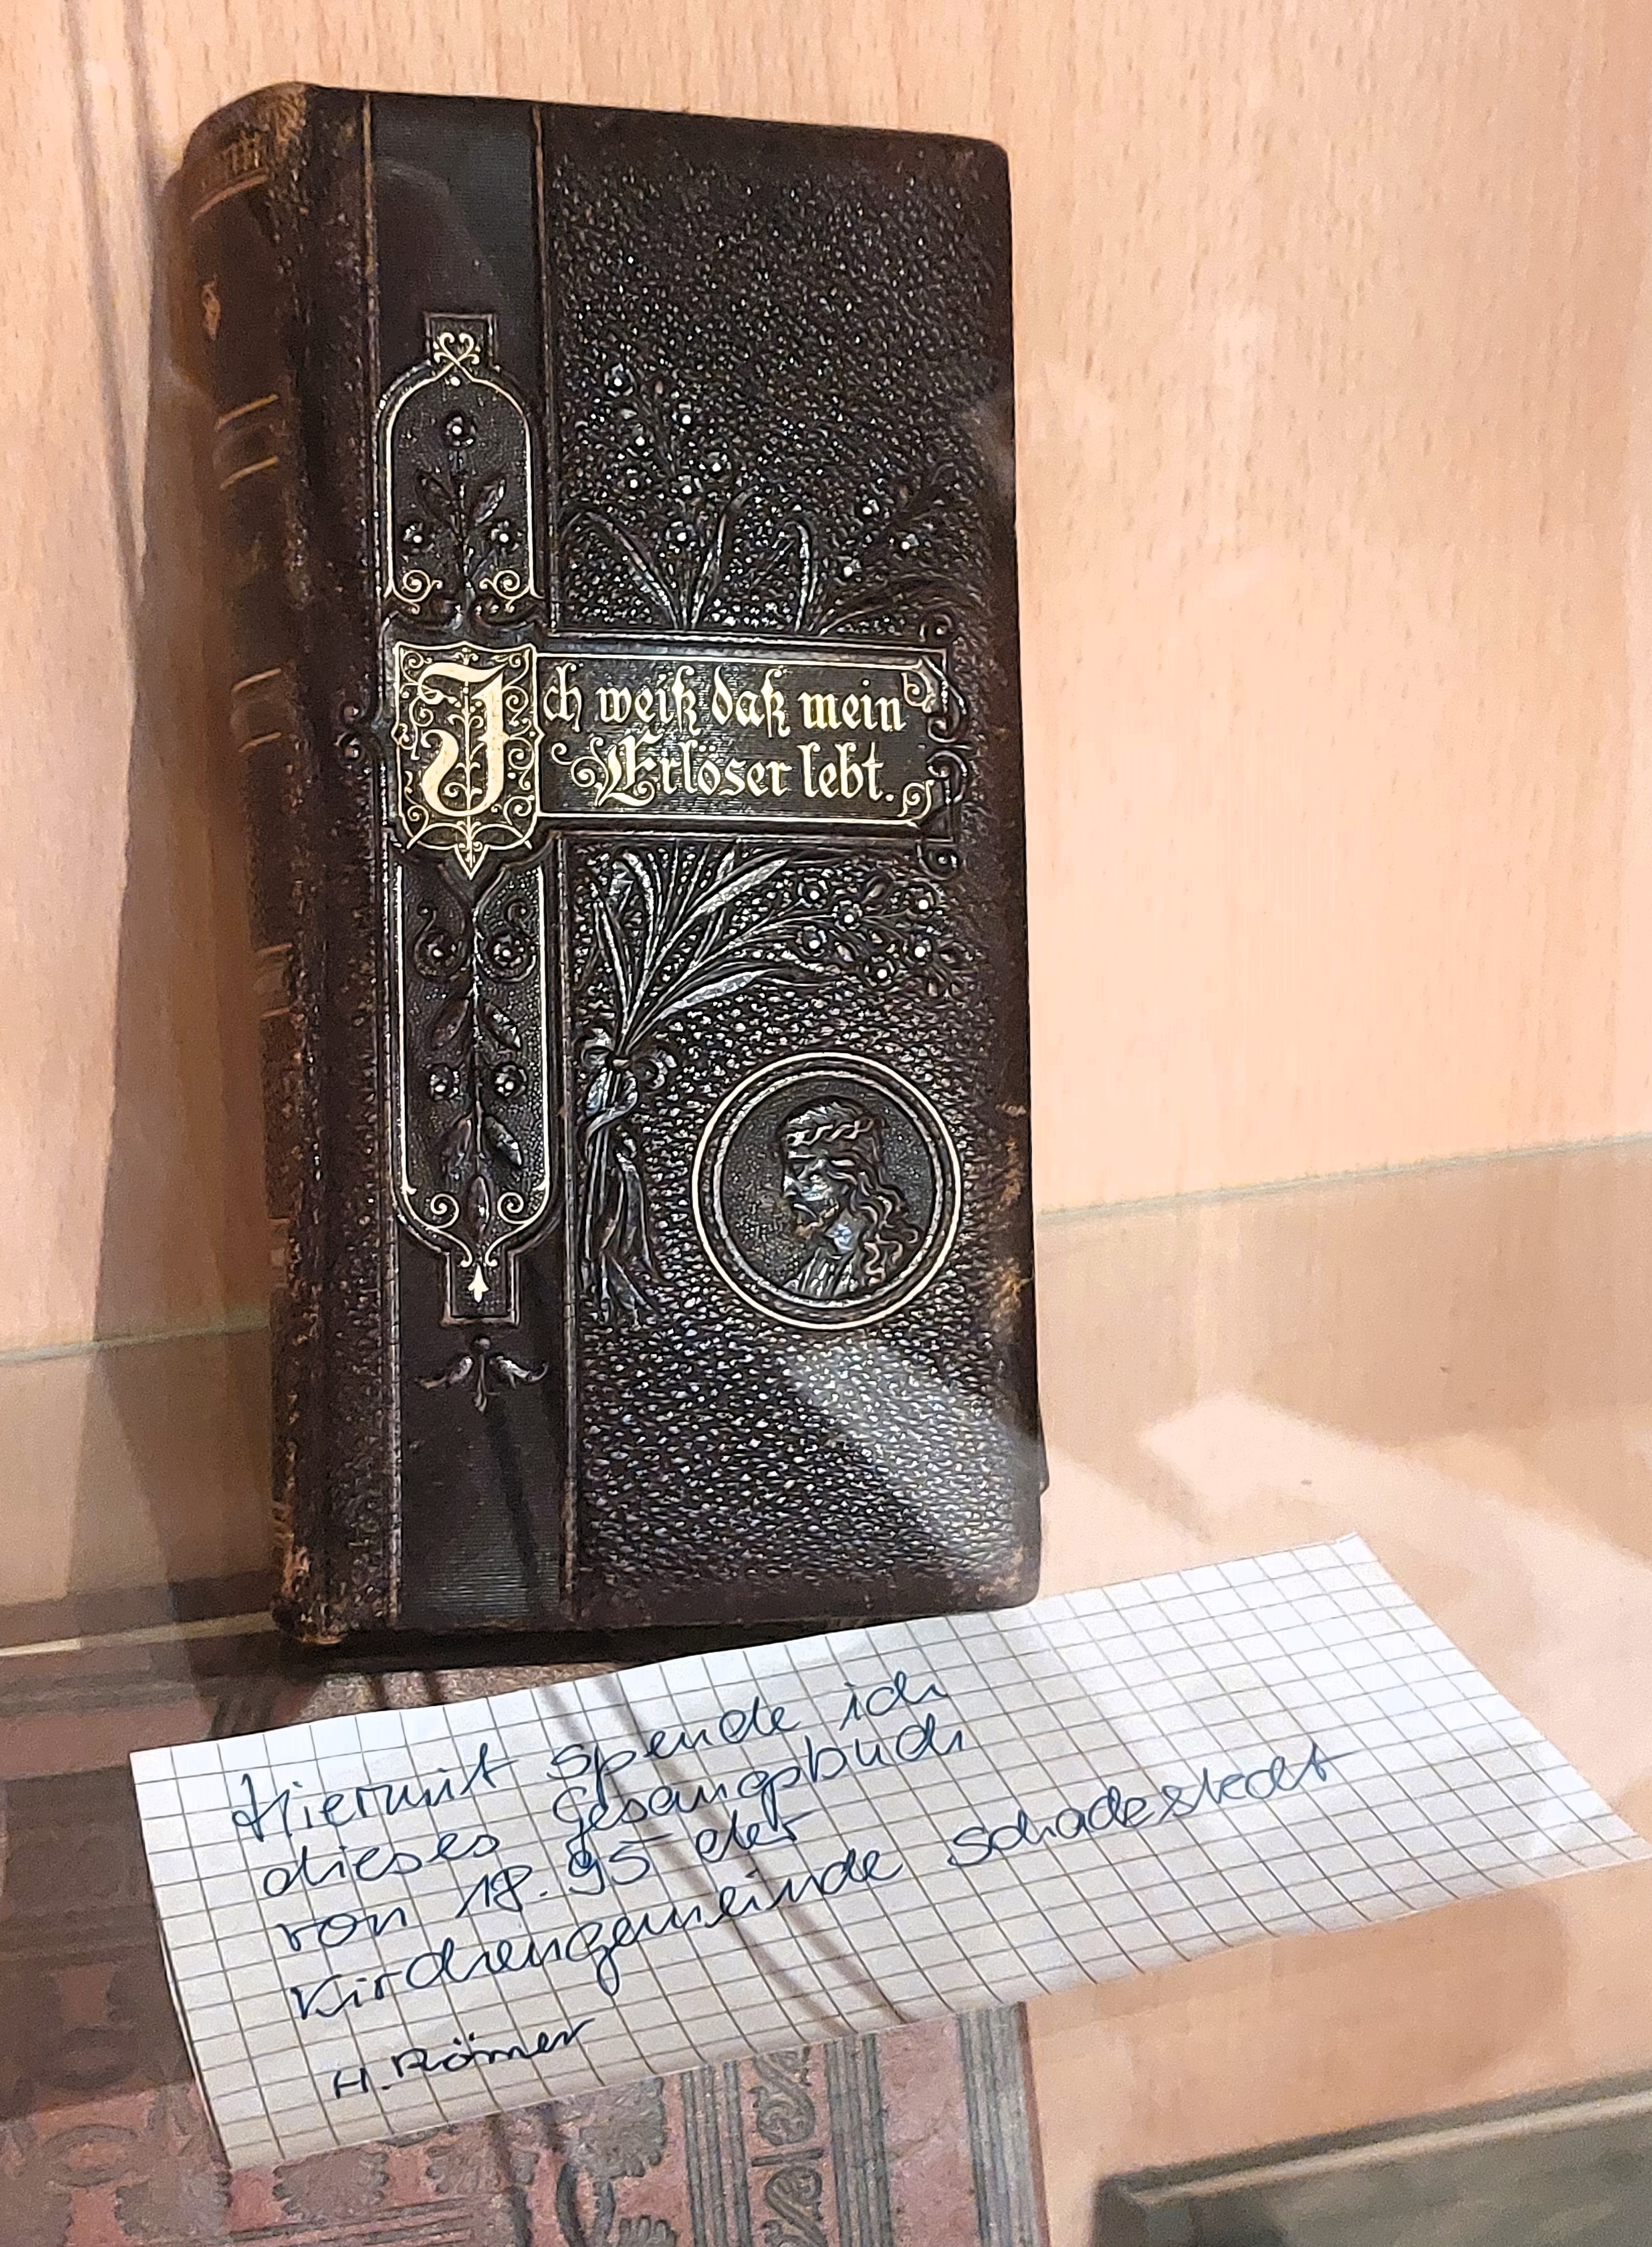 Ich weiß daß mein
Erlöser lebt.
Hiermit spende ich
dieses Gesangbuch
von 18.95 der
Kirchengemeinde Schadestedt
H. Römer